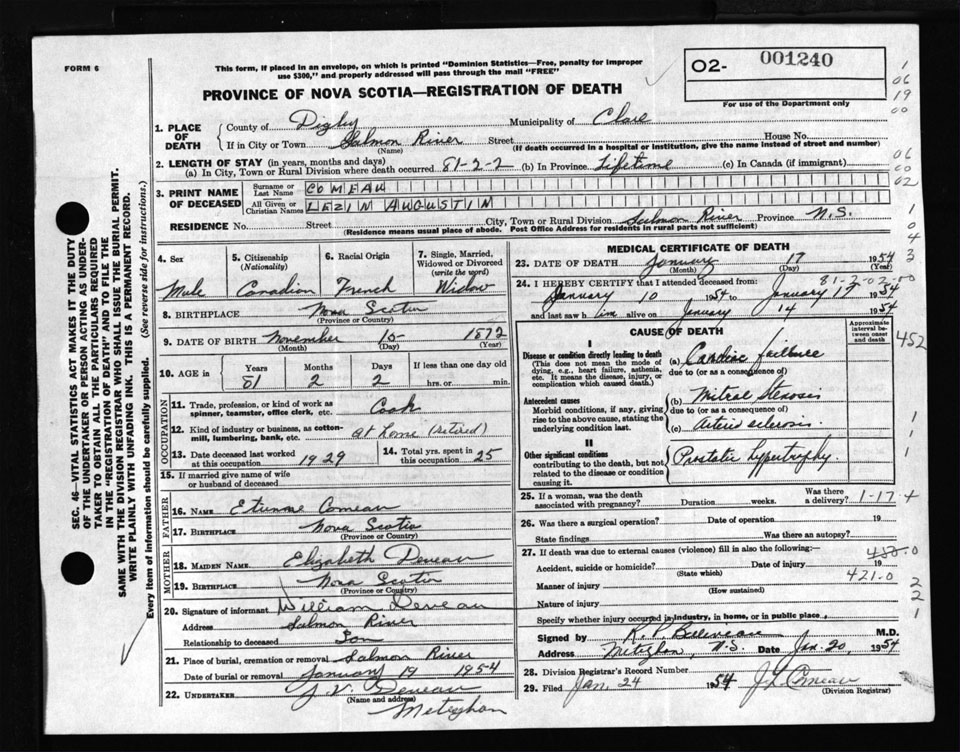 FORM 6
This form, if placed in an envelope, on which is printed "Dominion Statistics—Free, penalty for improper
use $300," and properly addressed will pass through the mail "FREE"
PROVINCE OF NOVA SCOTIA—REGISTRATION OF DEATH
O2- 001240
For use of the Department only
1. PLACE OF DEATH
County of Digby Municipality of Clare
If in City or Town Salmon River Street House No.
(Name) (If death occurred in a hospital or institution, give the name instead of street and number)
2. LENGTH OF STAY (in years, months and days)
(a) In City, Town or Rural Division where death occurred 81-2-2 (b) In Province Lifetime (c) In Canada (if immigrant)
3. PRINT NAME OF DECEASED
Surname or Last Name COMEAU
All Given or Christian Names LEZIM AUGUSTIM
RESIDENCE No. Street City, Town or Rural Division Salmon River Province N.S.
(Residence means usual place of abode. Post Office Address for residents in rural parts not sufficient)
4. Sex
Male
5. Citizenship (Nationality)
Canadian
6. Racial Origin
French
7. Single, Married, Widowed or Divorced (write the word)
Widow
8. BIRTHPLACE Nova Scotia
(Province or Country)
9. DATE OF BIRTH November 15 1872
(Month) (Day) (Year)
10. AGE in Years Months Days If less than one day old
81 2 2 hrs. or min.
OCCUPATION
11. Trade, profession, or kind of work as spinner, teamster, office clerk, etc. Cook
12. Kind of industry or business, as cotton-mill, lumbering, bank, etc. at home (retired)
13. Date deceased last worked at this occupation 1929
14. Total yrs. spent in this occupation 25
15. If married give name of wife or husband of deceased
FATHER
16. Name Etienne Comeau
17. BIRTHPLACE Nova Scotia
(Province or Country)
MOTHER
18. MAIDEN NAME Elizabeth Deveau
19. BIRTHPLACE Nova Scotia
(Province or Country)
20. Signature of informant William Deveau
Address Salmon River
Relationship to deceased Son
21. Place of burial, cremation or removal Salmon River
Date of burial or removal January 19 1954
22. UNDERTAKER J. V. Deveau
(Name and address)
Meteghan
MEDICAL CERTIFICATE OF DEATH
23. DATE OF DEATH January 17 1954
(Month) (Day) (Year)
81-2-02-50
24. I HEREBY CERTIFY that I attended deceased from:
January 10 1954 to January 17 1954
and last saw him alive on January 14 1954
CAUSE OF DEATH
Approximate interval between onset and death
I
Disease or condition directly leading to death
(This does not mean the mode of dying, e.g., heart failure, asthenia, etc. It means the disease, injury, or complication which caused death.)
(a) Cardiac failure
due to (or as a consequence of)
Antecedent causes
Morbid conditions, if any, giving rise to the above cause, stating the underlying condition last.
(b) Mitral Stenosis
due to (or as a consequence of)
(c) Arteriosclerosis.
II
Other significant conditions
contributing to the death, but not related to the disease or condition causing it.
Prostatic hypertrophy.
25. If a woman, was the death associated with pregnancy? Duration weeks. Was there a delivery? 1-17
26. Was there a surgical operation? Date of operation 19
State findings Was there an autopsy?
27. If death was due to external causes (violence) fill in also the following:
Accident, suicide or homicide? Date of injury 19
(State which)
421-0
Manner of injury
(How sustained)
Nature of injury
Specify whether injury occurred in industry, in home, or in public place
Signed by M.D.
Address Meteghan, N.S. Date Jan. 20, 1954
28. Division Registrar's Record Number
29. Filed Jan. 24 1954 J L Comeau
(Division Registrar)
452
SEC. 46—VITAL STATISTICS ACT MAKES IT THE DUTY
OF THE UNDERTAKER OR PERSON ACTING AS UNDER-
TAKER TO OBTAIN ALL THE PARTICULARS REQUIRED
IN THE "REGISTRATION OF DEATH" AND TO FILE THE
SAME WITH THE DIVISION REGISTRAR WHO SHALL ISSUE THE BURIAL PERMIT.
WRITE PLAINLY WITH UNFADING INK. THIS IS A PERMANENT RECORD.
Every item of information should be carefully supplied. (See reverse side for instructions.)